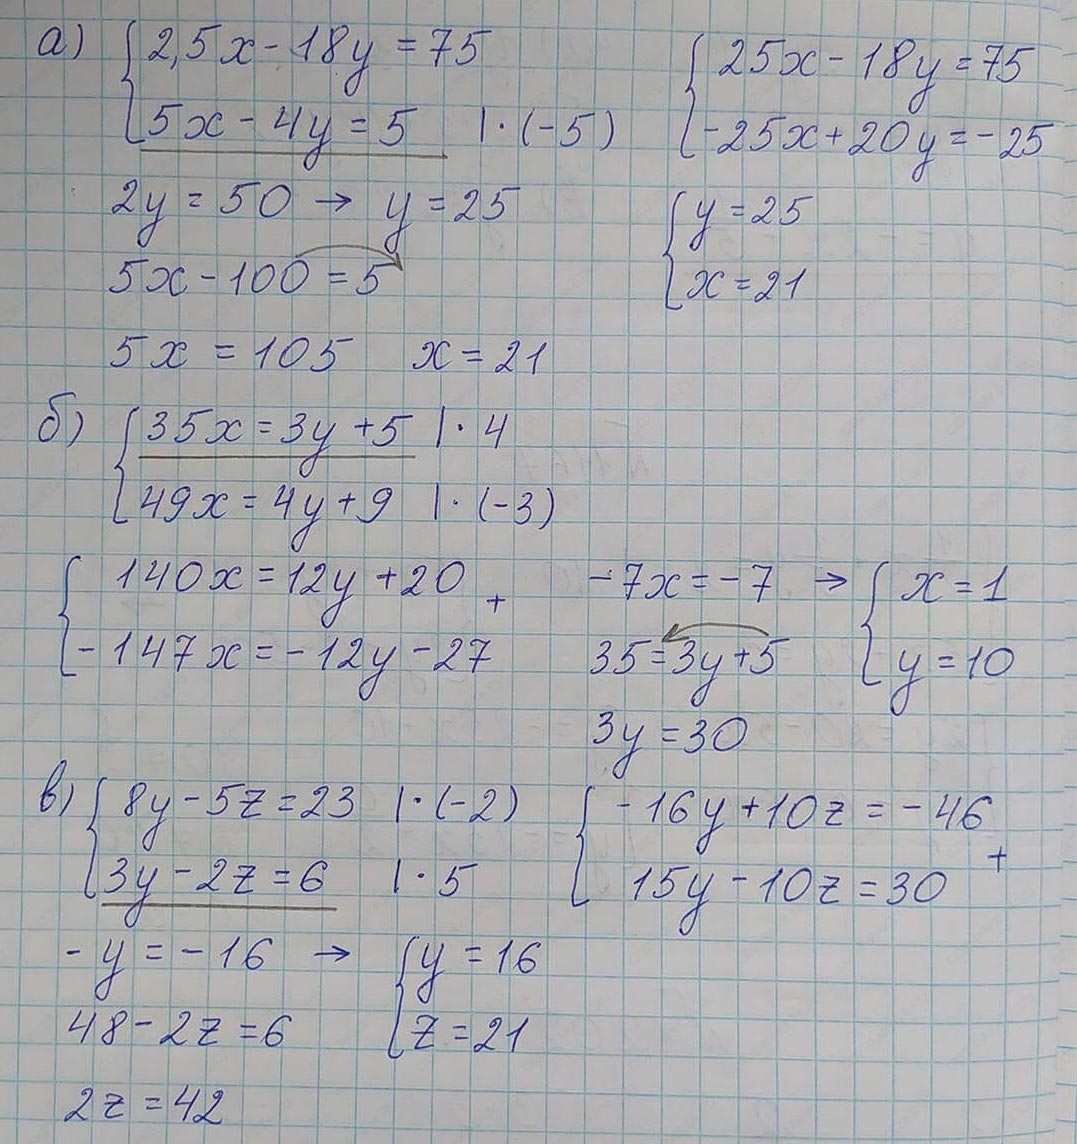 а) { 2,5x - 18y = 75
5x - 4y = 5 | · (-5)
{ 25x - 18y = 75
-25x + 20y = -25
2y = 50 → y = 25
5x - 100 = 5
5x = 105 x = 21
{ y = 25
x = 21
б) { 35x = 3y + 5 | · 4
49x = 4y + 9 | · (-3)
{ 140x = 12y + 20 +
-147x = -12y - 27
-7x = -7 → { x = 1
35 = 3y + 5 y = 10
3y = 30
в) { 8y - 5z = 23 | · (-2)
3y - 2z = 6 | · 5
{ -16y + 10z = -46 +
15y - 10z = 30
-y = -16 → { y = 16
48 - 2z = 6 z = 21
2z = 42